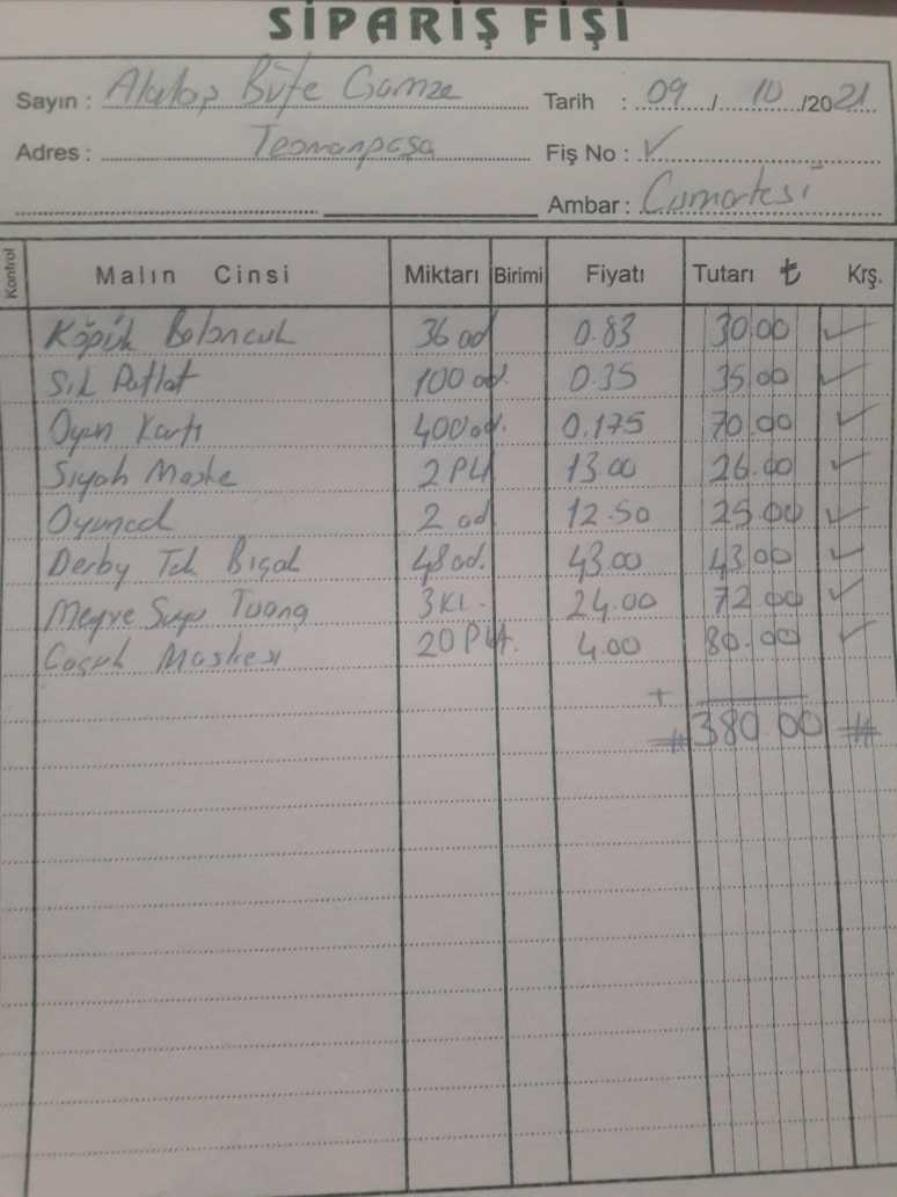 SİPARİŞ FİŞİ
Sayın : Alatop Büfe Gamze Tarih : 09 / 10 /2021
Adres : Teomanpaşa Fiş No : ✓
Ambar : Cumartesi
Kontrol Malın Cinsi Miktarı Birimi Fiyatı Tutarı ₺ Krş.
Köpük Baloncuk 36 ad 0.83 30.00 ✓
Sık Patlat 100 ad. 0.35 35.00 ✓
Oyun Kartı 400 ad. 0.175 70.00 ✓
Siyah Maske 2 Pkt 13.00 26.00 ✓
Oyuncak 2 ad 12.50 25.00 ✓
Derby Tek Bıçak 48 ad. 43.00 43.00 ✓
Meyve Suyu Tuang 3 Kt. 24.00 72.00 ✓
Çocuk Maskesi 20 Pkt. 4.00 80.00 ✓
+
# 380.00 #